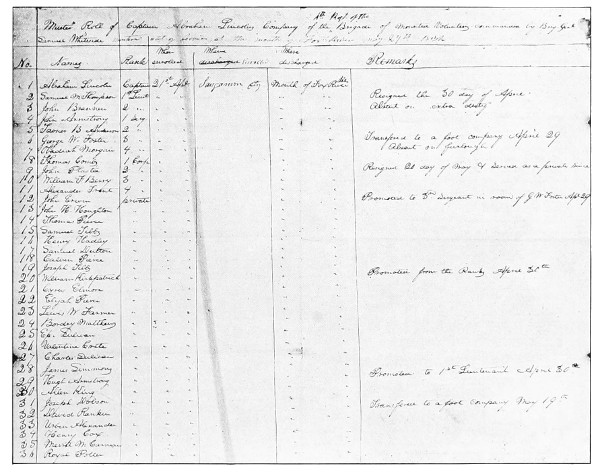 4th Regt of the
Muster Roll of Captain Abraham Lincolns Company of the Brigade of Mounted Volunteers commanded by Brig Genl
Samuel Whiteside mustered out of service at the mouth of Fox River May 27th 1832
When Where Where
No. Names Rank enrolled enrolled discharge Remarks
1 Abraham Lincoln Captain 21st Apl Sangamon Cty Mouth of Fox River
2 Samuel M Thompson 1 Lieut " " " Resigned the 30 day of April
3 John Brannan 2 " " " " Absent on extra duty
4 John Armstrong 1 Serg " " "
5 Tavner B Anderson 2 " " " "
6 George W. Foster 3 " " " " Transfered to a foot company April 29
7 Obadiah Morgan 4 " " " " Absent on furlough
8 Thomas Combs 1 Corp " " " Resigned 20 day of May & served as a private since
9 John Plaster 2 " " " "
10 William F. Berry 3 " " " "
11 Alexander Trent 4 " " " "
12 John Erwin private " " " Promoted to 3rd Sergeant in room of G W Foster Apl 29
13 John H Houghton " " " "
14 Thomas Pierce " " " "
15 Samuel Tibbs " " " "
16 Henry Hadley " " " "
17 Samuel Dutton " " " "
18 Calvin Pierce " " " "
19 Joseph Tibbs " " " "
20 William Kirkpatrick " " " " Promoted from the Ranks April 30th
21 Cyrus Elmore " " " "
22 Elijah Pierce " " " "
23 Lewis W. Farmer " " " "
24 Bordry Matthews " " " "
25 Ep. Sulivan " " " "
26 Valentine Crete " " " "
27 Charles Sulivan " " " "
28 James Simmons " " " " Promoted to 1st Lieutenant April 30th
29 Hugh Armstrong " " " "
30 Allen King " " " "
31 Joseph Dobson " " " " Transfered to a foot company May 19th
32 David Rankin " " " "
33 Urban Alexander " " " "
34 Henry Cox " " " "
35 Merritt M. Carman " " " "
36 Royal Potter " " " "